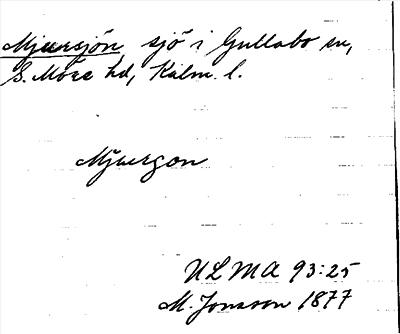 Mjuersjön, sjö i Gullabo sn,
S. Möre hd, Kalm. l.
Mjuergon
ULMA 93:25
M. Jonsson 1877